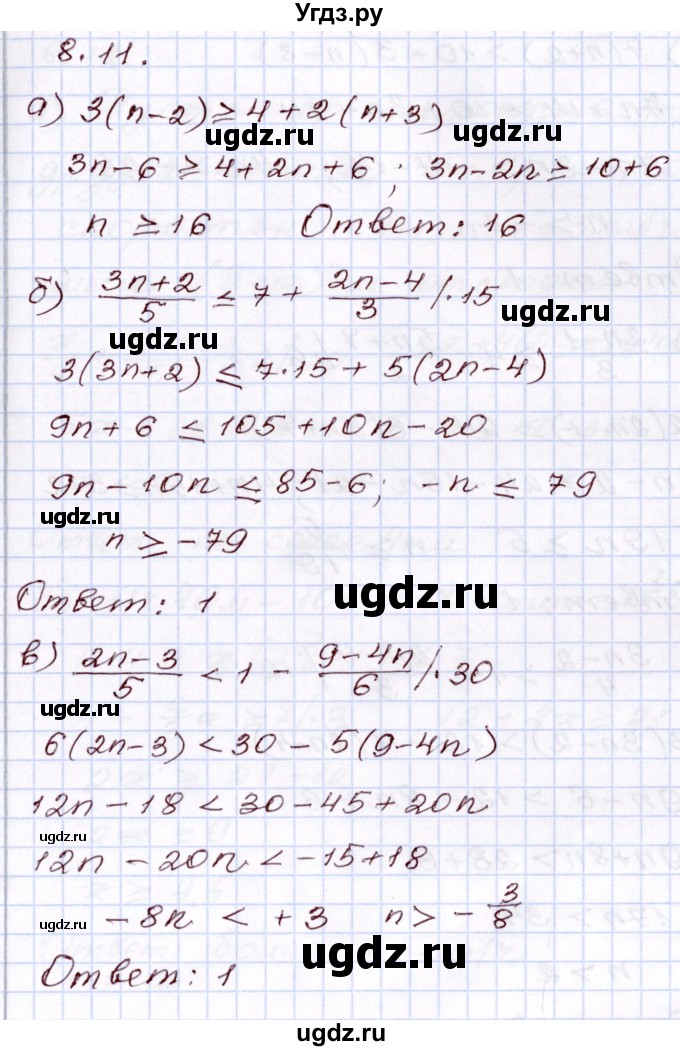 Угдз.ру
8.11.
а) 3(n-2) ≥ 4+2(n+3)
ugdz.ru ugdz.ru
3n-6 ≥ 4+2n+6; 3n-2n ≥ 10+6
n ≥ 16 Ответ: 16
ugdz.ru
б) (3n+2)/5 ≤ 7 + (2n-4)/3 /·15
ugdz.ru ugdz.ru
3(3n+2) ≤ 7·15 + 5(2n-4)
9n+6 ≤ 105+10n-20
9n-10n ≤ 85-6; -n ≤ 79
ugdz.ru
n ≥ -79
Ответ: 1
ugdz.ru
в) (2n-3)/5 < 1 - (9-4n)/6 /·30
ugdz.ru
6(2n-3) < 30 - 5(9-4n)
12n-18 < 30-45+20n
ugdz.ru
12n-20n < -15+18
ugdz.ru
-8n < +3 n > -3/8
ugdz.ru
Ответ: 1
ugdz.ru